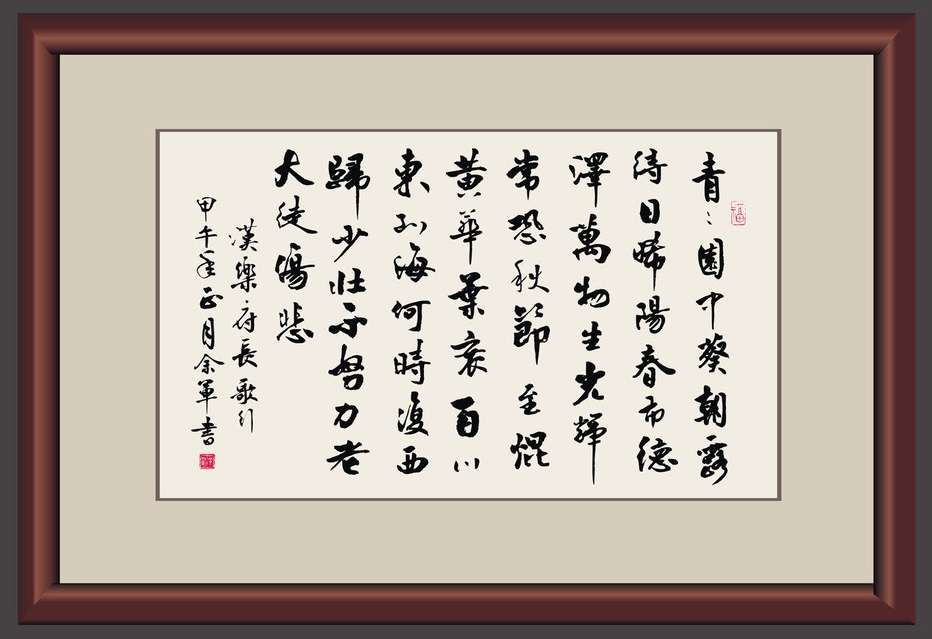 福
青〻園中葵朝露
待日晞陽春布德
澤萬物生光輝
常恐秋節至焜
黃華葉衰百川
東到海何時復西
歸少壯不努力老
大徒傷悲
漢樂府長歌行
甲午年正月余軍書